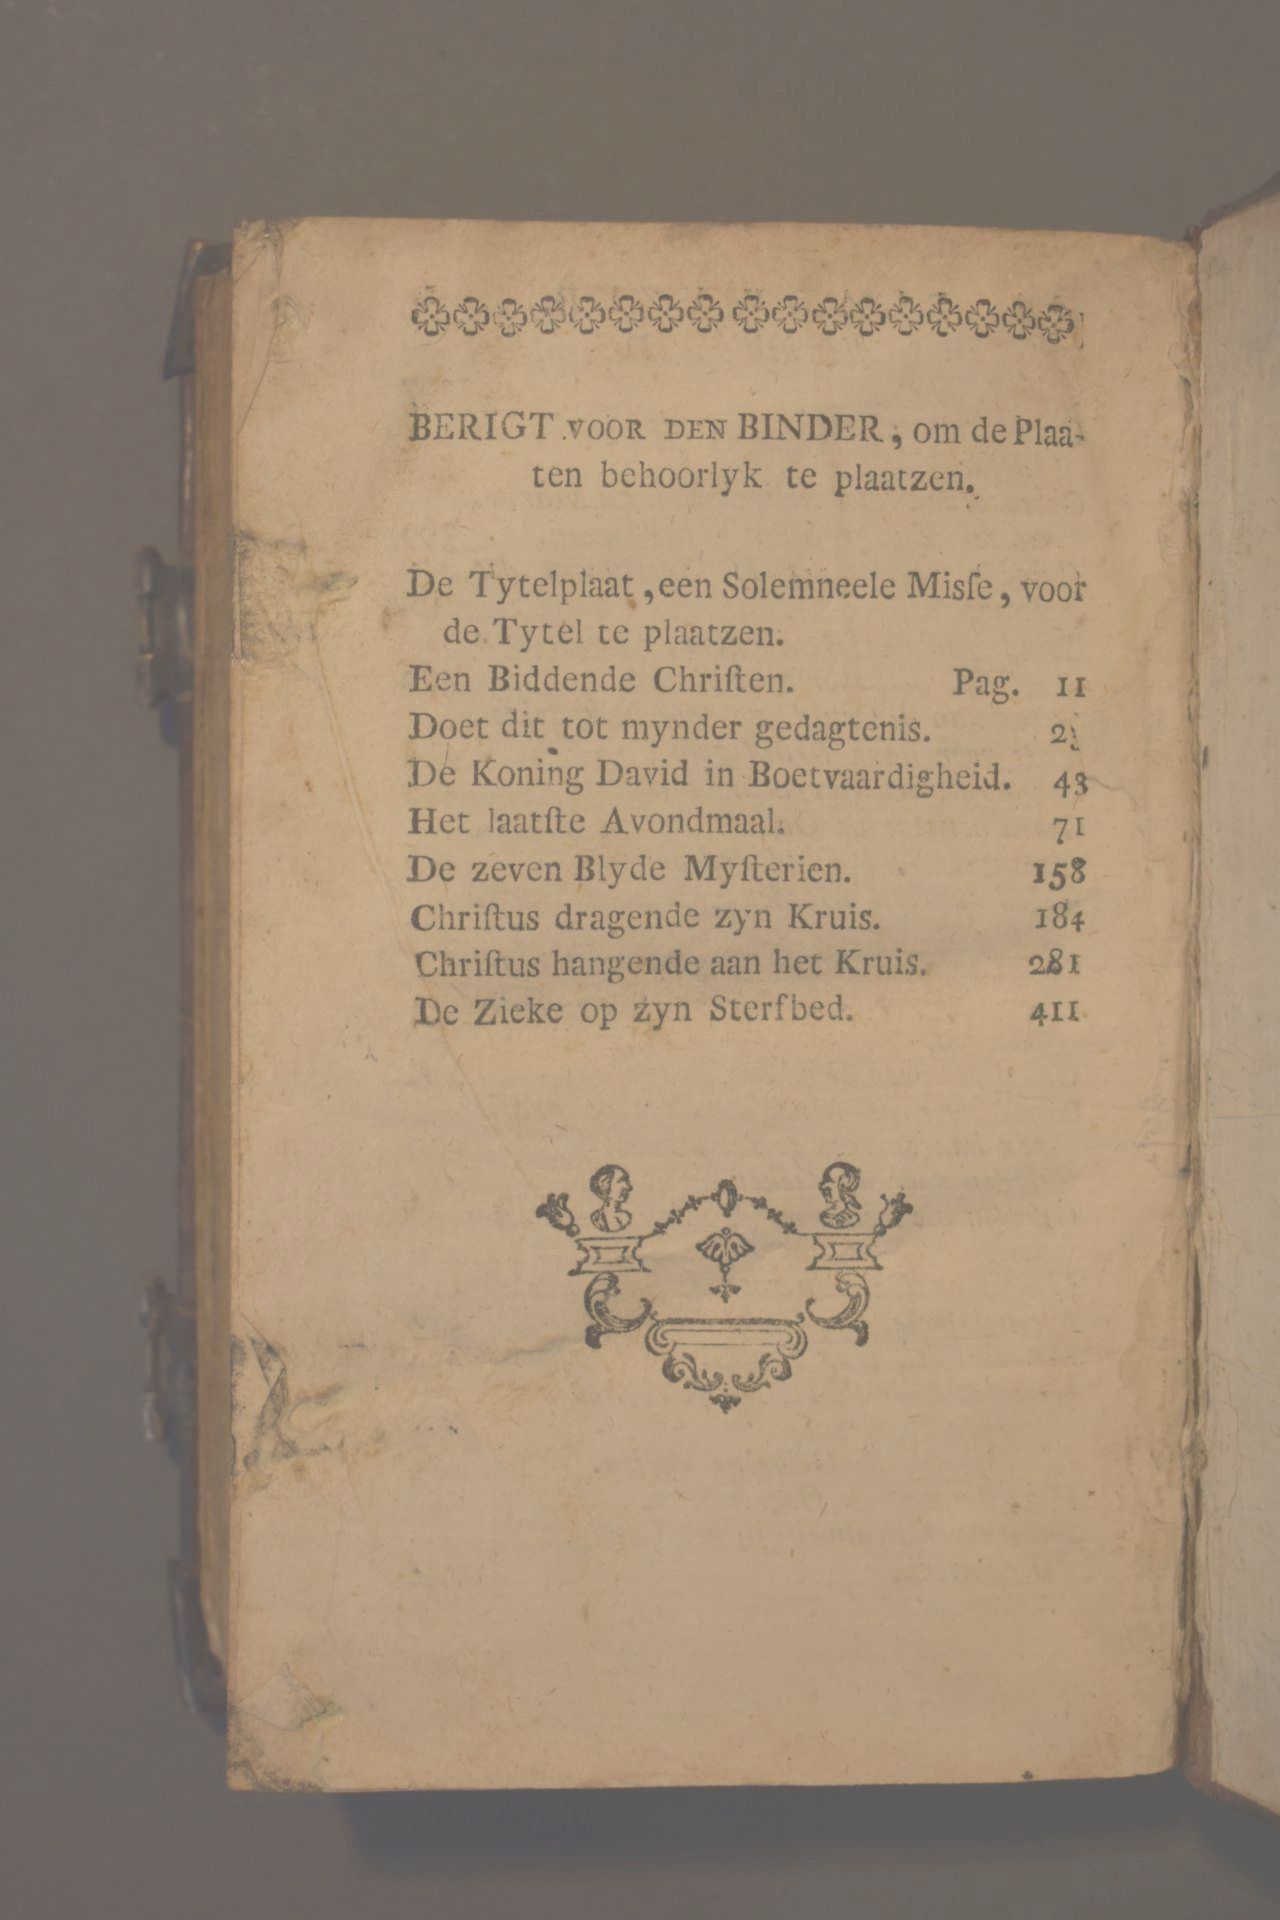 BERIGT VOOR DEN BINDER, om de Plaa-
ten behoorlyk te plaatzen.
De Tytelplaat, een Solemneele Misſe, voor
de Tytel te plaatzen.
Een Biddende Chriſten. Pag. 11
Doet dit tot mynder gedagtenis.
De Koning David in Boetvaardigheid. 43
Het laatſte Avondmaal. 71
De zeven Blyde Myſterien. 158
Chriſtus dragende zyn Kruis. 184
Chriſtus hangende aan het Kruis. 281
De Zieke op zyn Sterfbed. 411